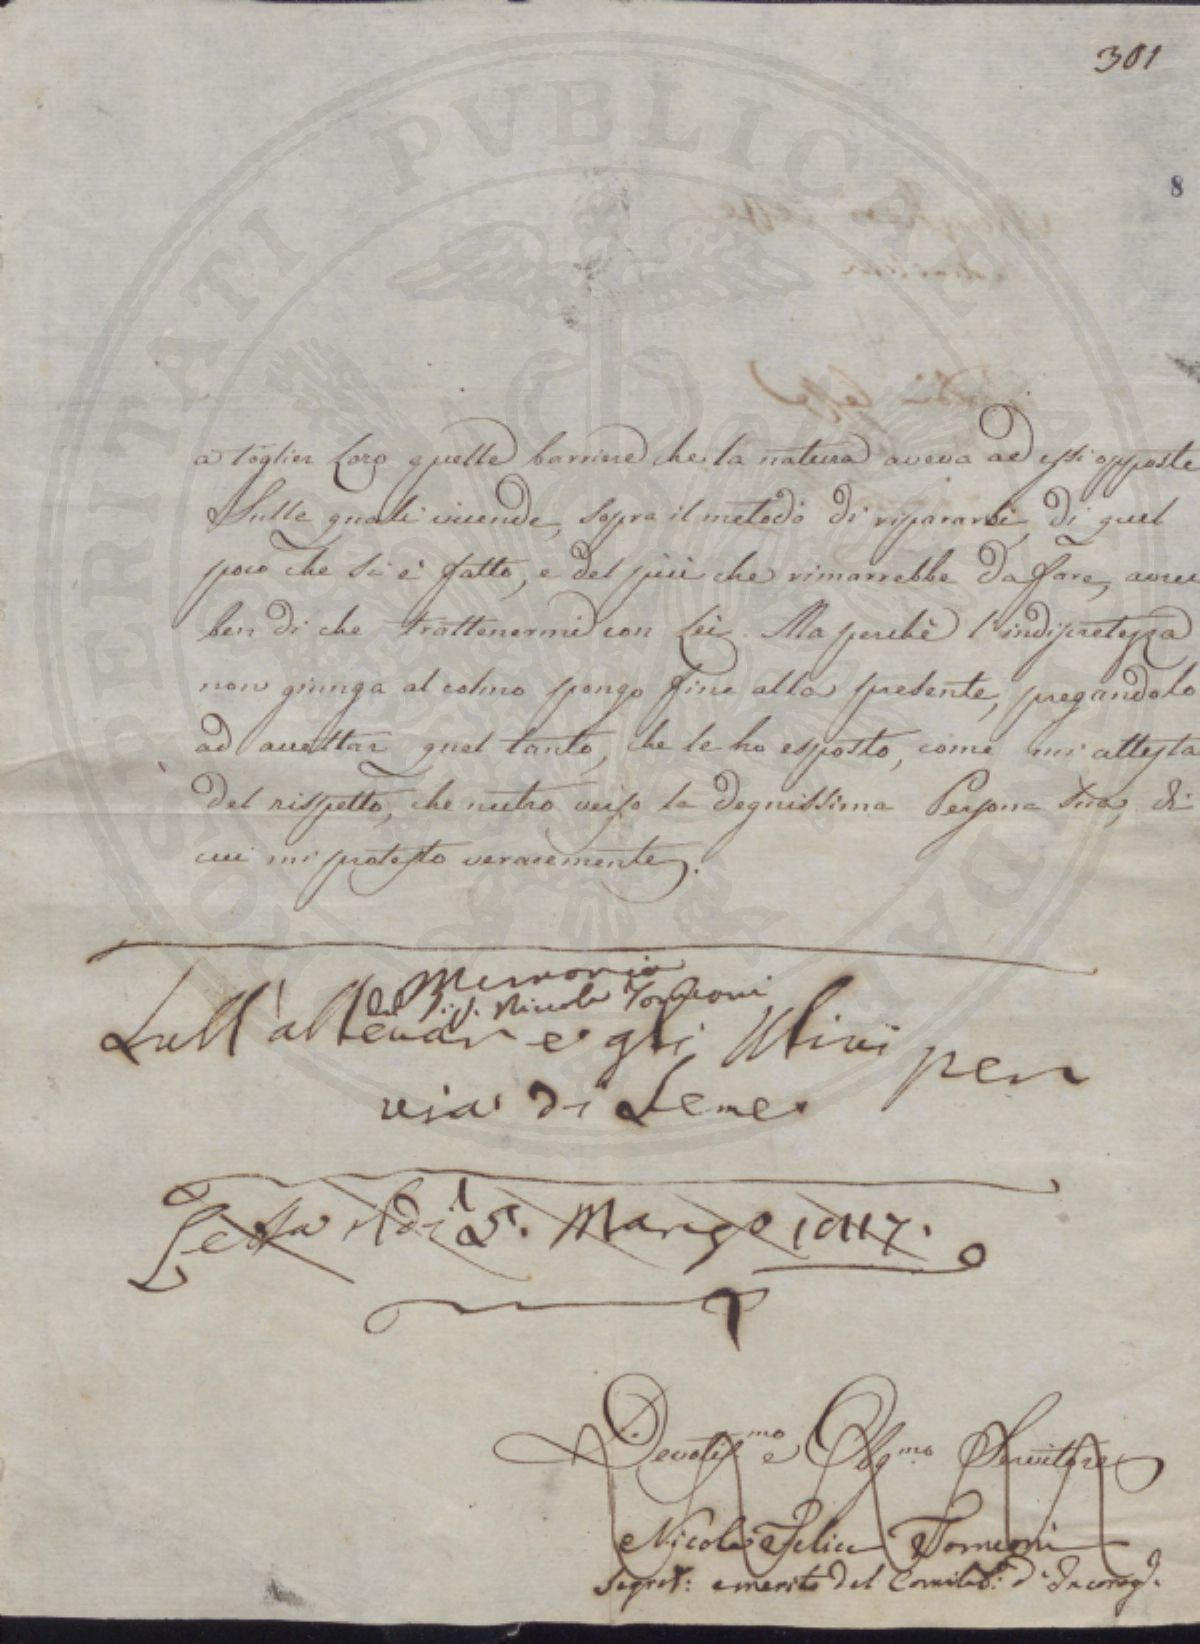 301
8
PROSPERITATI PVBLICAE
a toglier Loro quelle barriere che la natura aveva ad essi opposte
Sulle quali vicende, sopra il metodo di ripararsi, di quel
poco che si è fatto, e del più che rimarrebbe da fare, avrei
ben di che trattenermi con Lei. Ma perchè l'indiscretezza
non giunga al colmo pongo fine alla presente, pregandolo
ad accettar quel tanto, che le ho esposto, come mi attesta
del rispetto, che nutro verso la degnissima Persona Sua, di
cui mi protesto veracemente.
Memoria
del Sig. Niccola
Sull' allevare gli Ulivi per
via di Seme
Letta il dì 5. Marzo 1817.
Devotis.mo e Obg.mo Servitore
Nicola Felice
Segret: emerito del d'